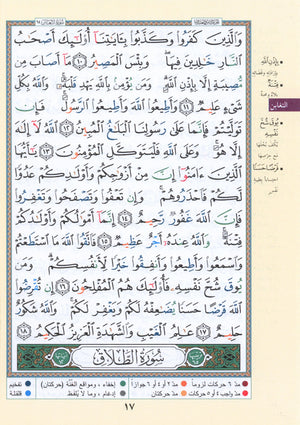 وَالَّذِينَ كَفَرُوا وَكَذَّبُوا بِـَٔايَٰتِنَآ أُو۟لَٰٓئِكَ أَصْحَٰبُ
النَّارِ خَٰلِدِينَ فِيهَا وَبِئْسَ الْمَصِيرُ ١٠ مَآ أَصَابَ مِن
مُّصِيبَةٍ إِلَّا بِإِذْنِ اللَّهِ وَمَن يُؤْمِنۢ بِاللَّهِ يَهْدِ قَلْبَهُۥ وَاللَّهُ بِكُلِّ
شَىْءٍ عَلِيمٌ ١١ وَأَطِيعُوا اللَّهَ وَأَطِيعُوا الرَّسُولَ فَإِن
تَوَلَّيْتُمْ فَإِنَّمَا عَلَىٰ رَسُولِنَا الْبَلَٰغُ الْمُبِينُ ١٢ اللَّهُ لَآ إِلَٰهَ
إِلَّا هُوَ وَعَلَى اللَّهِ فَلْيَتَوَكَّلِ الْمُؤْمِنُونَ ١٣ يَٰٓأَيُّهَا
الَّذِينَ ءَامَنُوٓا إِنَّ مِنْ أَزْوَٰجِكُمْ وَأَوْلَٰدِكُمْ عَدُوًّا
لَّكُمْ فَاحْذَرُوهُمْ وَإِن تَعْفُوا وَتَصْفَحُوا وَتَغْفِرُوا
فَإِنَّ اللَّهَ غَفُورٌ رَّحِيمٌ ١٤ إِنَّمَآ أَمْوَٰلُكُمْ وَأَوْلَٰدُكُمْ
فِتْنَةٌ وَاللَّهُ عِندَهُۥٓ أَجْرٌ عَظِيمٌ ١٥ فَاتَّقُوا اللَّهَ مَا اسْتَطَعْتُمْ
وَاسْمَعُوا وَأَطِيعُوا وَأَنفِقُوا خَيْرًا لِّأَنفُسِكُمْ وَمَن
يُوقَ شُحَّ نَفْسِهِۦ فَأُو۟لَٰٓئِكَ هُمُ الْمُفْلِحُونَ ١٦ إِن تُقْرِضُوا
اللَّهَ قَرْضًا حَسَنًا يُضَٰعِفْهُ لَكُمْ وَيَغْفِرْ لَكُمْ وَاللَّهُ شَكُورٌ
حَلِيمٌ ١٧ عَٰلِمُ الْغَيْبِ وَالشَّهَٰدَةِ الْعَزِيزُ الْحَكِيمُ ١٨
سُورَةُ الطَّلَاقِ
بِإِذْنِ اللَّهِ
التغابن
فِتْنَةٌ
يُوقَ شُحَّ
نَفْسِهِ
قَرْضًا حَسَنًا
مدّ ٦ حركات لزوماً
مدّ ٢ أو ٤ أو ٦ جوازاً
إخفاء، ومواقع الغنّة (حركتان)
تفخيم
مدّ واجب ٤ أو ٥ حركات
مدّ حركتان
إدغام، وما لا يُلفظ
قلقلة
١٧